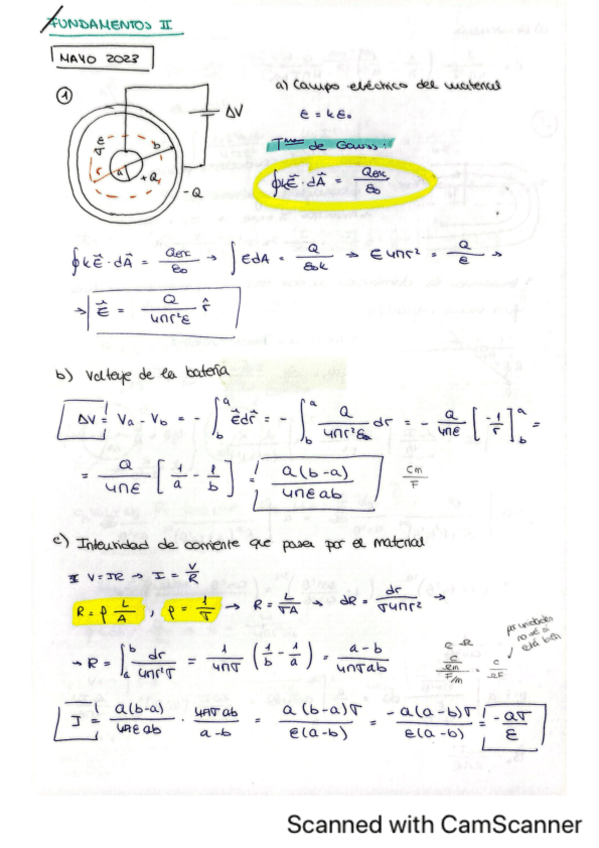 FUNDAMENTOS II
MAYO 2023
① a) Campo eléctrico del material
ΔV
σ ε
b
r
a
+Q
-Q
ε = kε₀
Tma de Gauss:
∮kE⃗·dA⃗ = Qenc/ε₀
∮kE⃗·dA⃗ = Qenc/ε₀ → ∫EdA = Q/ε₀k → E4πr² = Q/ε →
→ E⃗ = Q/4πr²ε r̂
b) Voltaje de la batería
ΔV = Va - Vb = -∫_b^a E⃗dr⃗ = -∫_b^a Q/4πr²ε dr = -Q/4πε [-1/r]_b^a =
= Q/4πε [1/a - 1/b] = Q(b-a)/4πεab cm/F
c) Intensidad de corriente que pasa por el material
V=IR → I = V/R
R = ρ L/A , ρ = 1/σ → R = L/σA → dR = dr/σ4πr² →
→ R = ∫_a^b dr/4πr²σ = 1/4πσ (1/b - 1/a) = a-b/4πσab
por unidades no sé si está bien
I = Q(b-a)/4πεab · 4πσab/a-b = Q(b-a)σ/ε(a-b) = -Q(a-b)σ/ε(a-b) = -Qσ/ε
Scanned with CamScanner